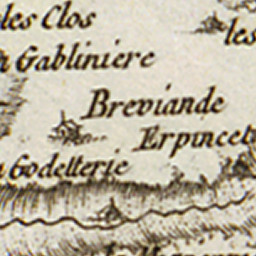 les Clos
les
Gabliniere
Breviande
Erpincet
Godetterie